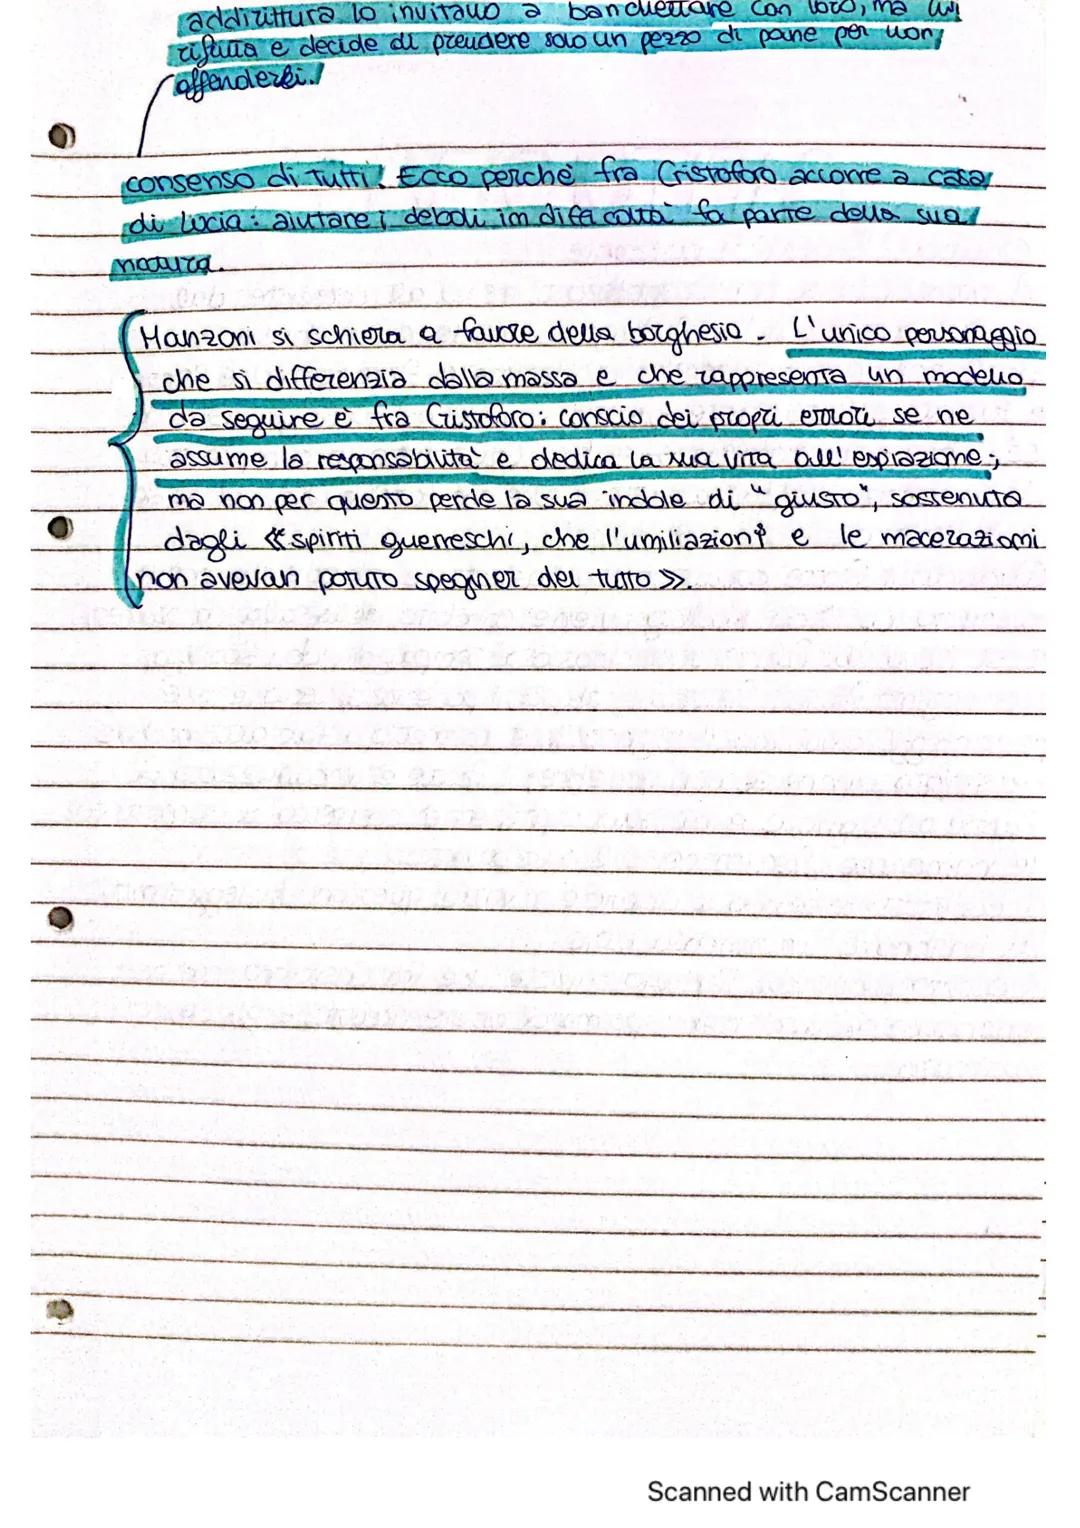 addirittura lo invitano a banchettare con loro, ma lui
rifiuta e decide di prendere solo un pezzo di pane per non
offenderli.
consenso di tutti. Ecco perchè fra Cristoforo accorre a casa
di Lucia: aiutare i deboli in difficoltà fa parte della sua
natura.
Manzoni si schiera a favore della borghesia. L'unico personaggio
che si differenzia dalla massa e che rappresenta un modello
da seguire è fra Cristoforo: conscio dei propri errori se ne
assume la responsabilità e dedica la sua vita all'espiazione;
ma non per questo perde la sua indole di "giusto", sostenuta
dagli «spiriti guerreschi, che l'umiliazioni e le macerazioni
non avevan potuto spegner del tutto».
Scanned with CamScanner